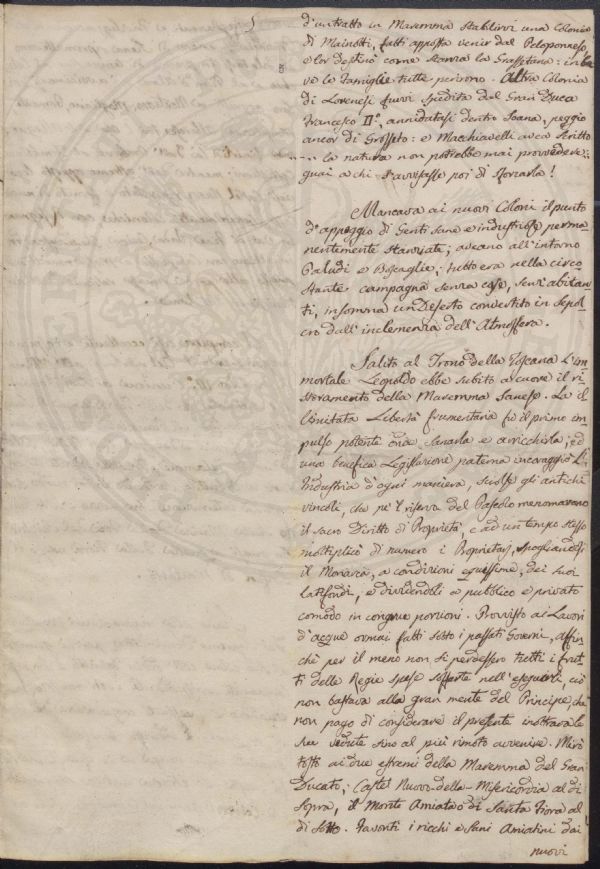 d'un tratto in Maremma stabilirvi una Colonia
di Mainotti, fatti apposta venir dal Peloponneso,
e lor destinò come stanza la Grossetana: in bre
ve le Famiglie tutte perirono. Altra Colonia
di Lorenesi fuvvi spedita dal Gran Duca
Francesco II.º, annidatasi dentro Soana, peggio
ancor di Grosseto: e Macchiavelli avea scritto
.... la natura non potrebbe mai provvedere:
guai a chi s'avvisasse poi di sforzarla!
Mancava ai nuovi Coloni il punto
d'appoggio di Genti sane e industriose perma
nentemente stanziate; aveano all'intorno
Paludi e Boscaglie; tutto era nella circo
stante campagna senza case, senz'abitan
ti, insomma un Deserto convertito in Sepol
cro dall'inclemenza dell'Atmosfera.
Salito al Trono della Toscana l'im
mortale Leopoldo ebbe subito a cuore il ri
storamento della Maremma Sanese. La il
limitata Libertà frumentaria fù il primo im
pulso potente onde sanarla e arricchirla; ed
una benefica Legislazione paterna incoraggiò l'
Industria d'ogni maniera, sciolse gli antichi
vincoli, che pe'l riserva del Pascolo manomettevano
il sacro Diritto di Proprietà, e ad un tempo stesso
moltiplicò di numero i Proprietarj, spogliandosi
il Monarca, a condizioni equissime, dei suoi
latifondi, e dividendoli a pubblico e privato
comodo in congrue porzioni. Provvisto ai Lavori
d'acque ormai fatti sotto i passati Governi, affin
chè per il meno non si perdessero tutti i frut
ti delle Regie spese sofferte nell'eseguirli, ciò
non bastava alla gran mente del Principe, che
non pago di considerare il presente inoltrava le
sue vedute sino al più rimoto avvenire. Mirò
tosto ai due estremi della Maremma del Gran
Ducato; Castel Nuovo-della-Misericordia al di
sopra, il Monte Amiata o di Santa Fiora al
di sotto. Favoriti i ricchi e sani Amiatini dai
nuovi